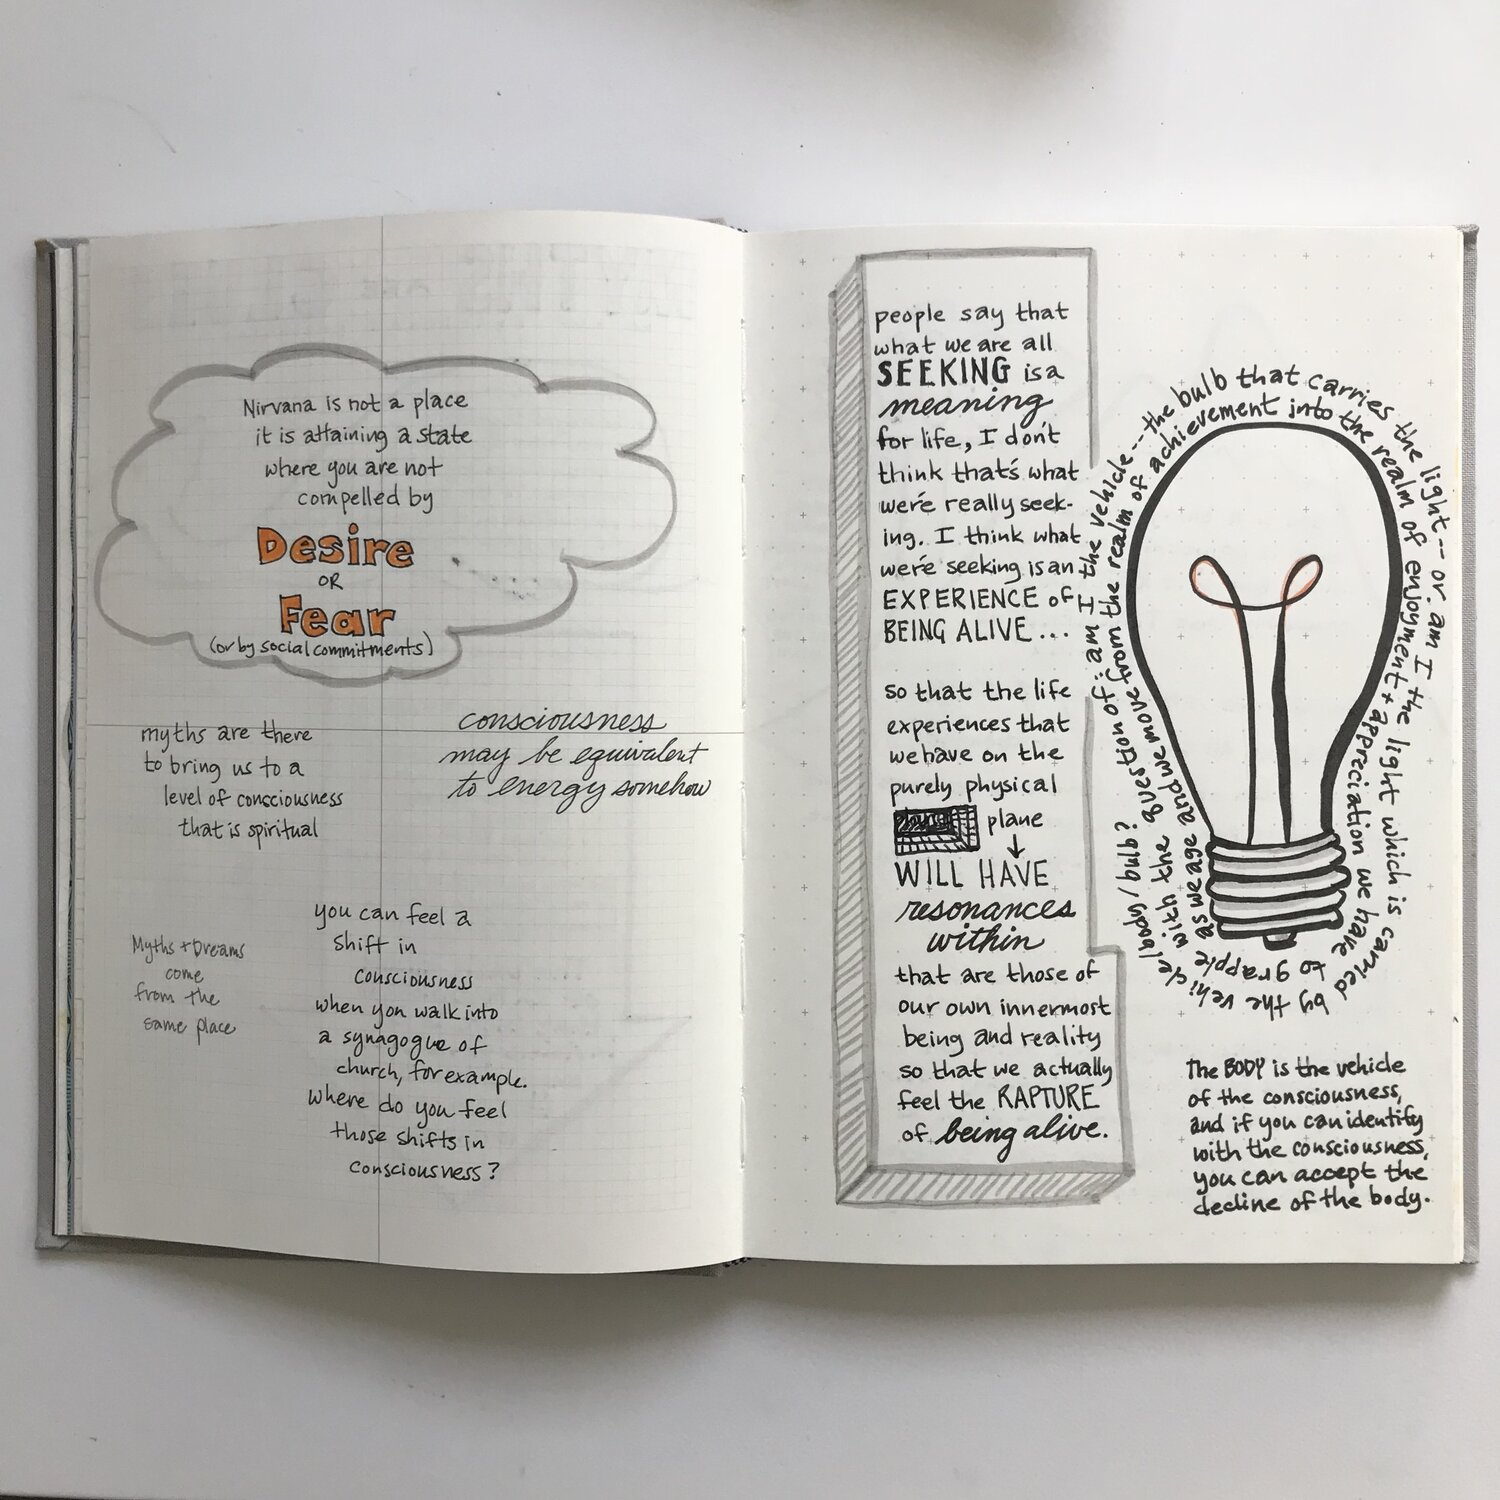 Nirvana is not a place
it is attaining a state
where you are not
compelled by
Desire
OR
Fear
(or by social commitments)
myths are there
to bring us to a
level of consciousness
that is spiritual
consciousness
may be equivalent
to energy somehow
you can feel a
shift in
consciousness
when you walk into
a synagogue of
church, for example.
where do you feel
those shifts in
consciousness?
Myths + Dreams
come
from the
same place
people say that
what we are all
SEEKING is a
meaning
for life, I don't
think that's what
we're really seek-
ing. I think what
we're seeking is an
EXPERIENCE of
BEING ALIVE...
so that the life
experiences that
we have on the
purely physical
plane
WILL HAVE
resonances
within
that are those of
our own innermost
being and reality
so that we actually
feel the RAPTURE
of being alive.
as we age and we move from the realm of achievement into the realm of enjoyment + appreciation we have to grapple with the question of: am I the vehicle---the bulb that carries the light-- or am I the light which is carried by the vehicle/body/bulb?
The BODY is the vehicle
of the consciousness,
and if you can identify
with the consciousness,
you can accept the
decline of the body.